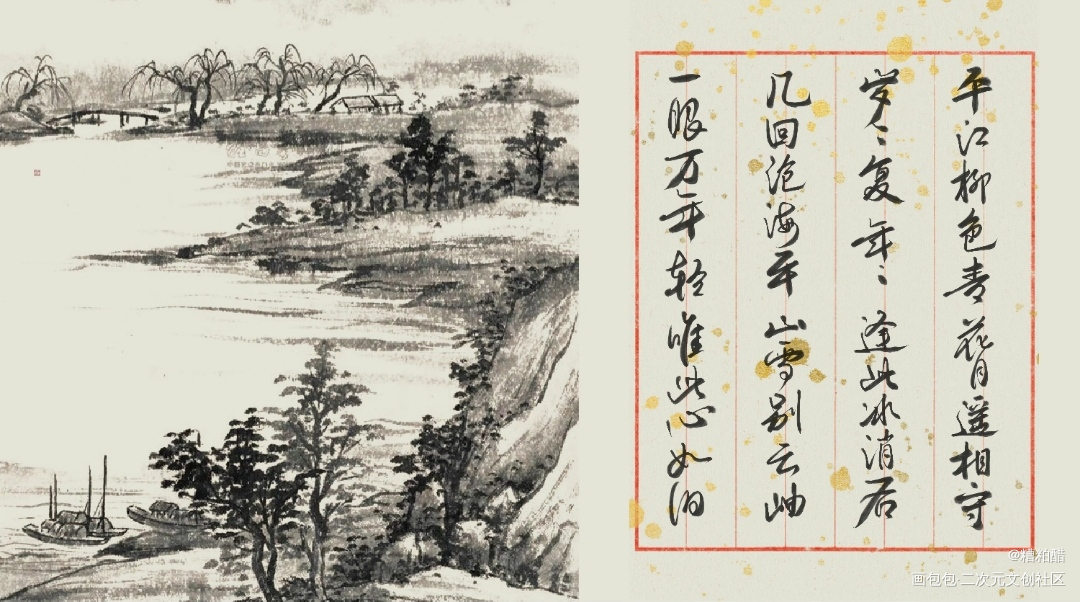 平江柳色青 花月遥相守
岁〻复年〻 逢此冰消后
几回沧海平 山雪别云岫
一眼万年轻 唯此心如旧
@糟粕醋
画包包-二次元文创社区